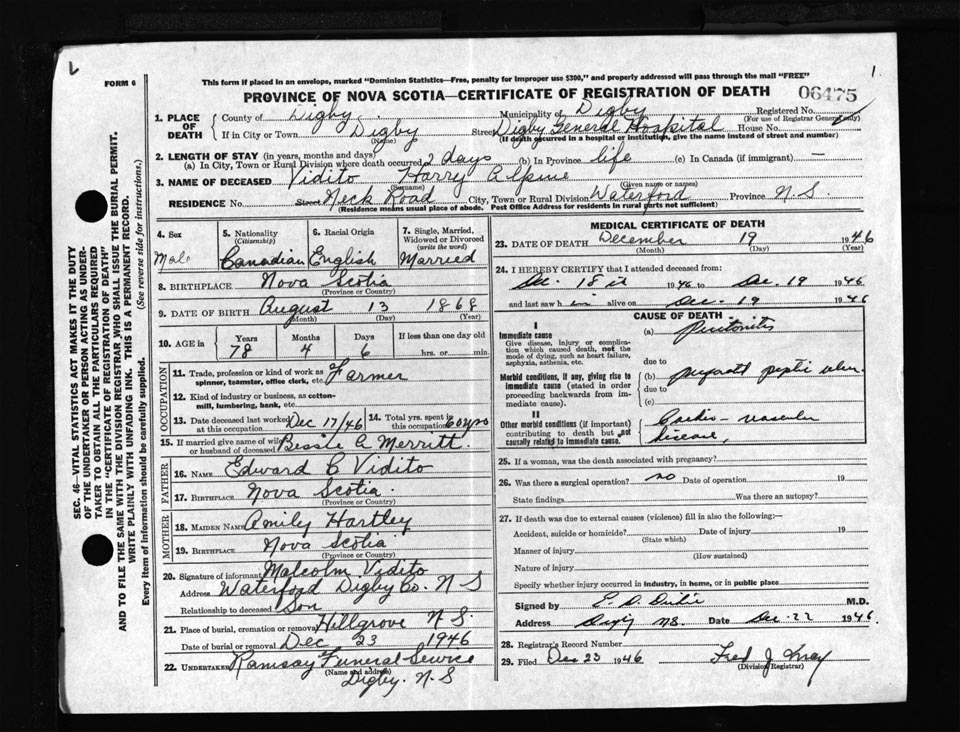 L
1.
FORM 6
This form if placed in an envelope, marked "Dominion Statistics—Free, penalty for improper use $300," and properly addressed will pass through the mail "FREE"
PROVINCE OF NOVA SCOTIA—CERTIFICATE OF REGISTRATION OF DEATH
06475
1. PLACE OF DEATH
County of Digby Municipality of Digby Registered No.
(For use of Registrar General only)
If in City or Town Digby Street Digby General Hospital House No.
(Name) (If death occurred in a hospital or institution, give the name instead of street and number)
2. LENGTH OF STAY (in years, months and days)
(a) In City, Town or Rural Division where death occurred 2 days (b) In Province life (c) In Canada (if immigrant) —
3. NAME OF DECEASED Vidito Harry Alpine
(Surname) (Given name or names)
RESIDENCE No. Street Neck Road City, Town or Rural Division Waterford Province N.S
(Residence means usual place of abode. Post Office Address for residents in rural parts not sufficient)
SEC. 46—VITAL STATISTICS ACT MAKES IT THE DUTY
OF THE UNDERTAKER OR PERSON ACTING AS UNDER-
TAKER TO OBTAIN ALL THE PARTICULARS REQUIRED
IN THE "CERTIFICATE OF REGISTRATION OF DEATH"
AND TO FILE THE SAME WITH THE DIVISION REGISTRAR WHO SHALL ISSUE THE BURIAL PERMIT.
WRITE PLAINLY WITH UNFADING INK. THIS IS A PERMANENT RECORD.
Every item of information should be carefully supplied. (See reverse side for instructions.)
4. Sex
Male
5. Nationality
(Citizenship)
Canadian
6. Racial Origin
English
7. Single, Married,
Widowed or Divorced
(write the word)
Married
8. BIRTHPLACE Nova Scotia
(Province or Country)
9. DATE OF BIRTH August 13 1868
(Month) (Day) (Year)
10. AGE in Years Months Days If less than one day
78 4 6 hrs. or min.
OCCUPATION
11. Trade, profession or kind of work as
spinner, teamster, office clerk, etc. Farmer
12. Kind of industry or business, as cotton-
mill, lumbering, bank, etc.
13. Date deceased last worked at this occupation Dec 17/46
14. Total yrs. spent in this occupation 60 yrs
15. If married give name of wife or husband of deceased Bessie A Merritt
FATHER
16. NAME Edward C Vidito
17. BIRTHPLACE Nova Scotia
(Province or Country)
MOTHER
18. MAIDEN NAME Amily Hartley
19. BIRTHPLACE Nova Scotia
(Province or Country)
20. Signature of informant Malcolm Vidito
Address Waterford Digby Co. N S
Relationship to deceased Son
21. Place of burial, cremation or removal Hillgrove N S.
Date of burial or removal Dec 23 1946
22. UNDERTAKER Ramsay Funeral Service
(Name and address)
Digby. N. S
MEDICAL CERTIFICATE OF DEATH
23. DATE OF DEATH December 19 1946
(Month) (Day)
24. I HEREBY CERTIFY that I attended deceased from:
Dec. 18 1946 to Dec. 19 1946
and last saw h im alive on Dec. 19 1946
CAUSE OF DEATH
I
Immediate cause
Give disease, injury or complica-
tion which caused death, not the
mode of dying, such as heart failure,
asphyxia, asthenia, etc.
(a) Peritonitis
due to
Morbid conditions, if any, giving rise to
immediate cause (stated in order
proceeding backwards from im-
mediate cause).
(b) peptic ulcer
due to
(c)
II
Other morbid conditions (if important)
contributing to death but not
causally related to immediate cause.
Cardio-vascular
disease,
25. If a woman, was the death associated with pregnancy?
26. Was there a surgical operation? no Date of operation 19
State findings Was there an autopsy?
27. If death was due to external causes (violence) fill in also the following:—
Accident, suicide or homicide? Date of injury 19
(State which)
Manner of injury
(How sustained)
Nature of injury
Specify whether injury occurred in industry, in home, or in public place
Signed by M.D.
Address Digby NS. Date Dec. 22 1946
28. Registrar's Record Number
29. Filed Dec 23 1946 Fred J
(Division Registrar)